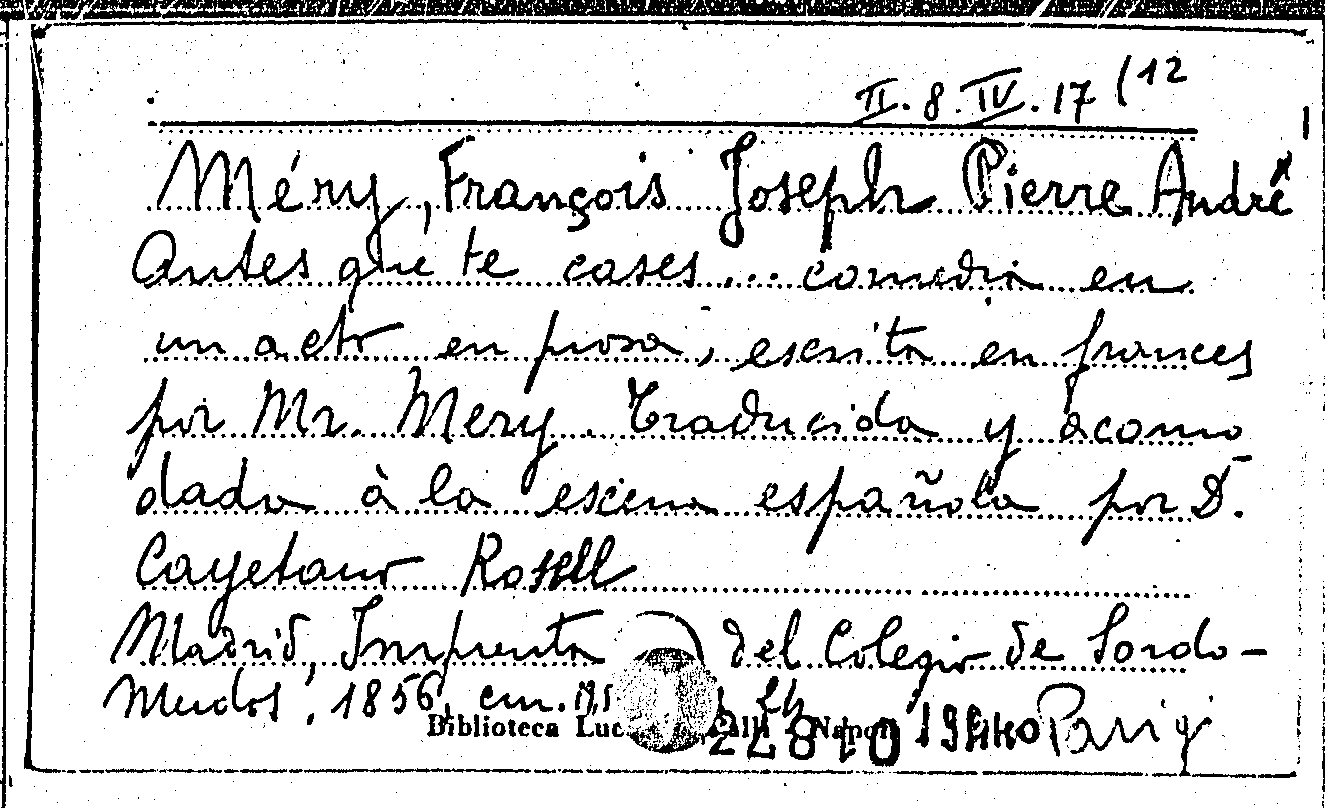 II. 8. IV. 17 (12
Méry, François Joseph Pierre André
Antes que te cases ... comedia en
un acto en prosa, escrita en frances
por Mr. Mery. Traducida y acomo
dada à la escena española por D.
Cayetano Rosell
Madrid, Imprenta del Colegio de Sordo-
Mudos, 1856, cm.
Biblioteca Luc Napoli
Parigi